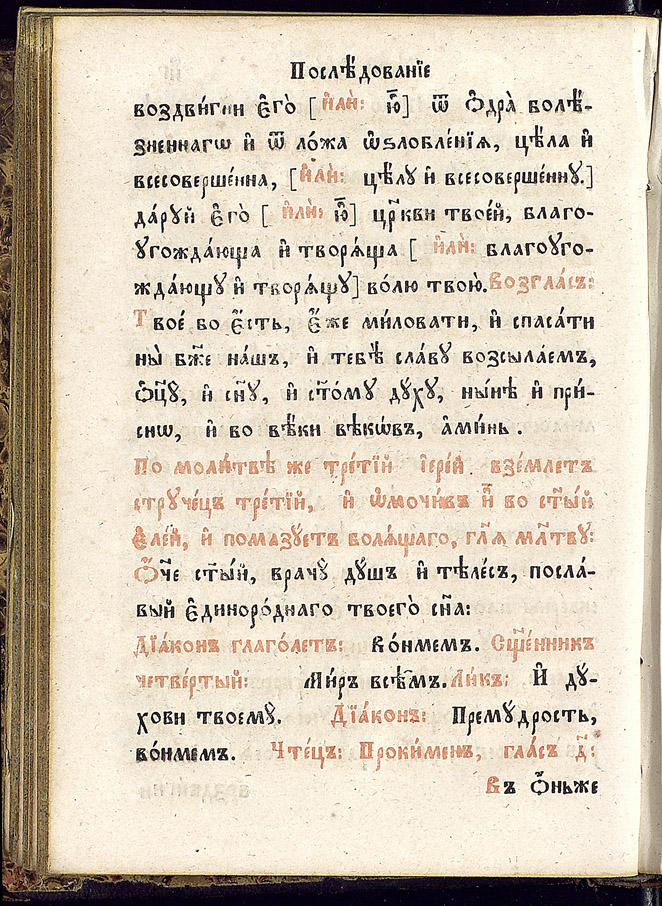 Послѣ́дованїе
воздви́гни є҆го̀ [и҆лѝ: ю҆̀] ѿ ѻ҆дра̀ волѣ́-
зненнагѡ и҆ ѿ ло́жа ѡ҆ѕлобле́нїѧ, цѣ́ла и҆
всесоверше́нна, [и҆лѝ: цѣ́лꙋ и҆ всесоверше́ннꙋ.]
да́рꙋй є҆го̀ [ и҆лѝ: ю҆̀] цр҃кви твое́й, благо-
ꙋгожда́юща и҆ творѧ́ща [ и҆лѝ: благоꙋго-
жда́ющꙋ и҆ творѧ́щꙋ] во́лю твою̀. Возгла́съ:
Твое́ бо є҆́сть, є҆́же ми́ловати, и҆ спаса́ти
ны̀ бж҃е на́шъ, и҆ тебѣ̀ сла́вꙋ возсыла́емъ,
ѻ҆ц҃ꙋ̀, и҆ сн҃ꙋ, и҆ ст҃о́мꙋ дꙋ́хꙋ, ны́нѣ и҆ при́-
снѡ, и҆ во вѣ́ки вѣкѡ́въ, а҆ми́нь.
По моли́твѣ же тре́тїй і҆ере́й взе́млетъ
стрꙋче́цъ тре́тїй, и҆ ѡ҆мочи́въ и҆̀ во ст҃ы́й
є҆ле́й, и҆ пома́зꙋетъ волѧ́щаго, гл҃ѧ мл҃твꙋ:
Ѻ҆́ч҃е ст҃ы́й, врачꙋ̀ дꙋ́шъ и҆ тѣле́съ, посла́-
вый є҆диноро́днаго твоего̀ сн҃а:
Дїа́конъ глаго́летъ: Во́нмемъ. Сщ҃е́нникъ
четве́ртый: Ми́ръ всѣ́мъ. Ли́къ: И҆ дꙋ́-
хови твоемꙋ̀. Дїа́конъ: Премꙋ́дрость,
во́нмемъ. Чте́цъ: Проки́менъ, гла́съ д҃:
Въ ѻ҆́ньже